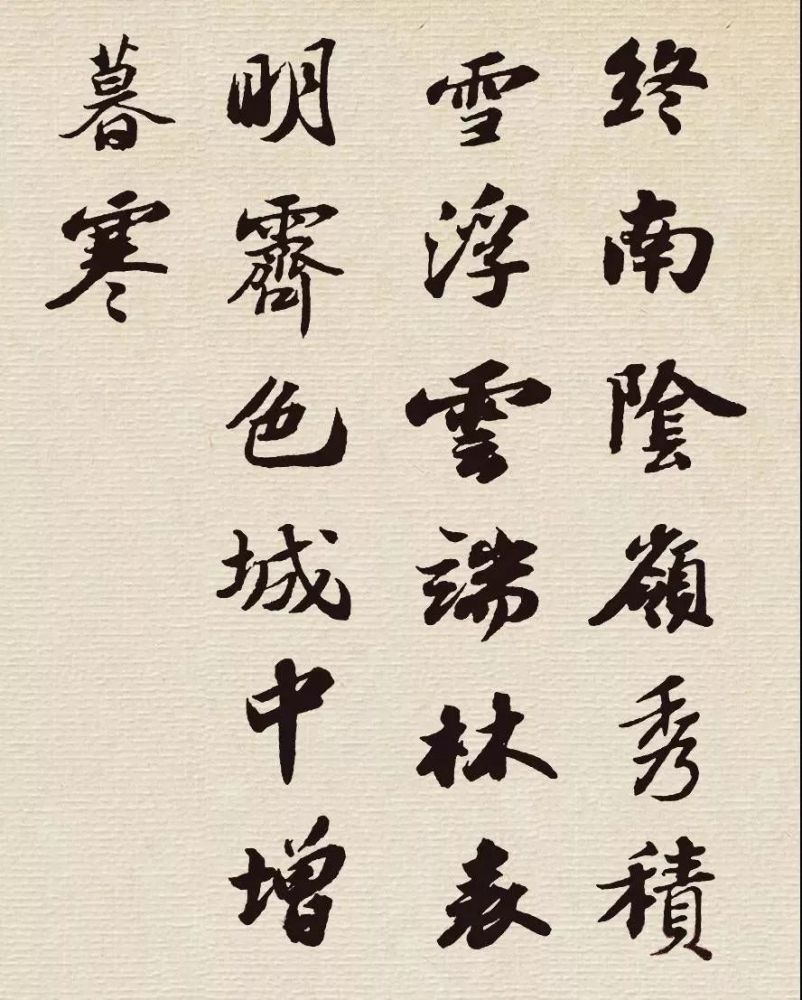 終南陰嶺秀積
雪浮雲端林表
明霽色城中增
暮寒